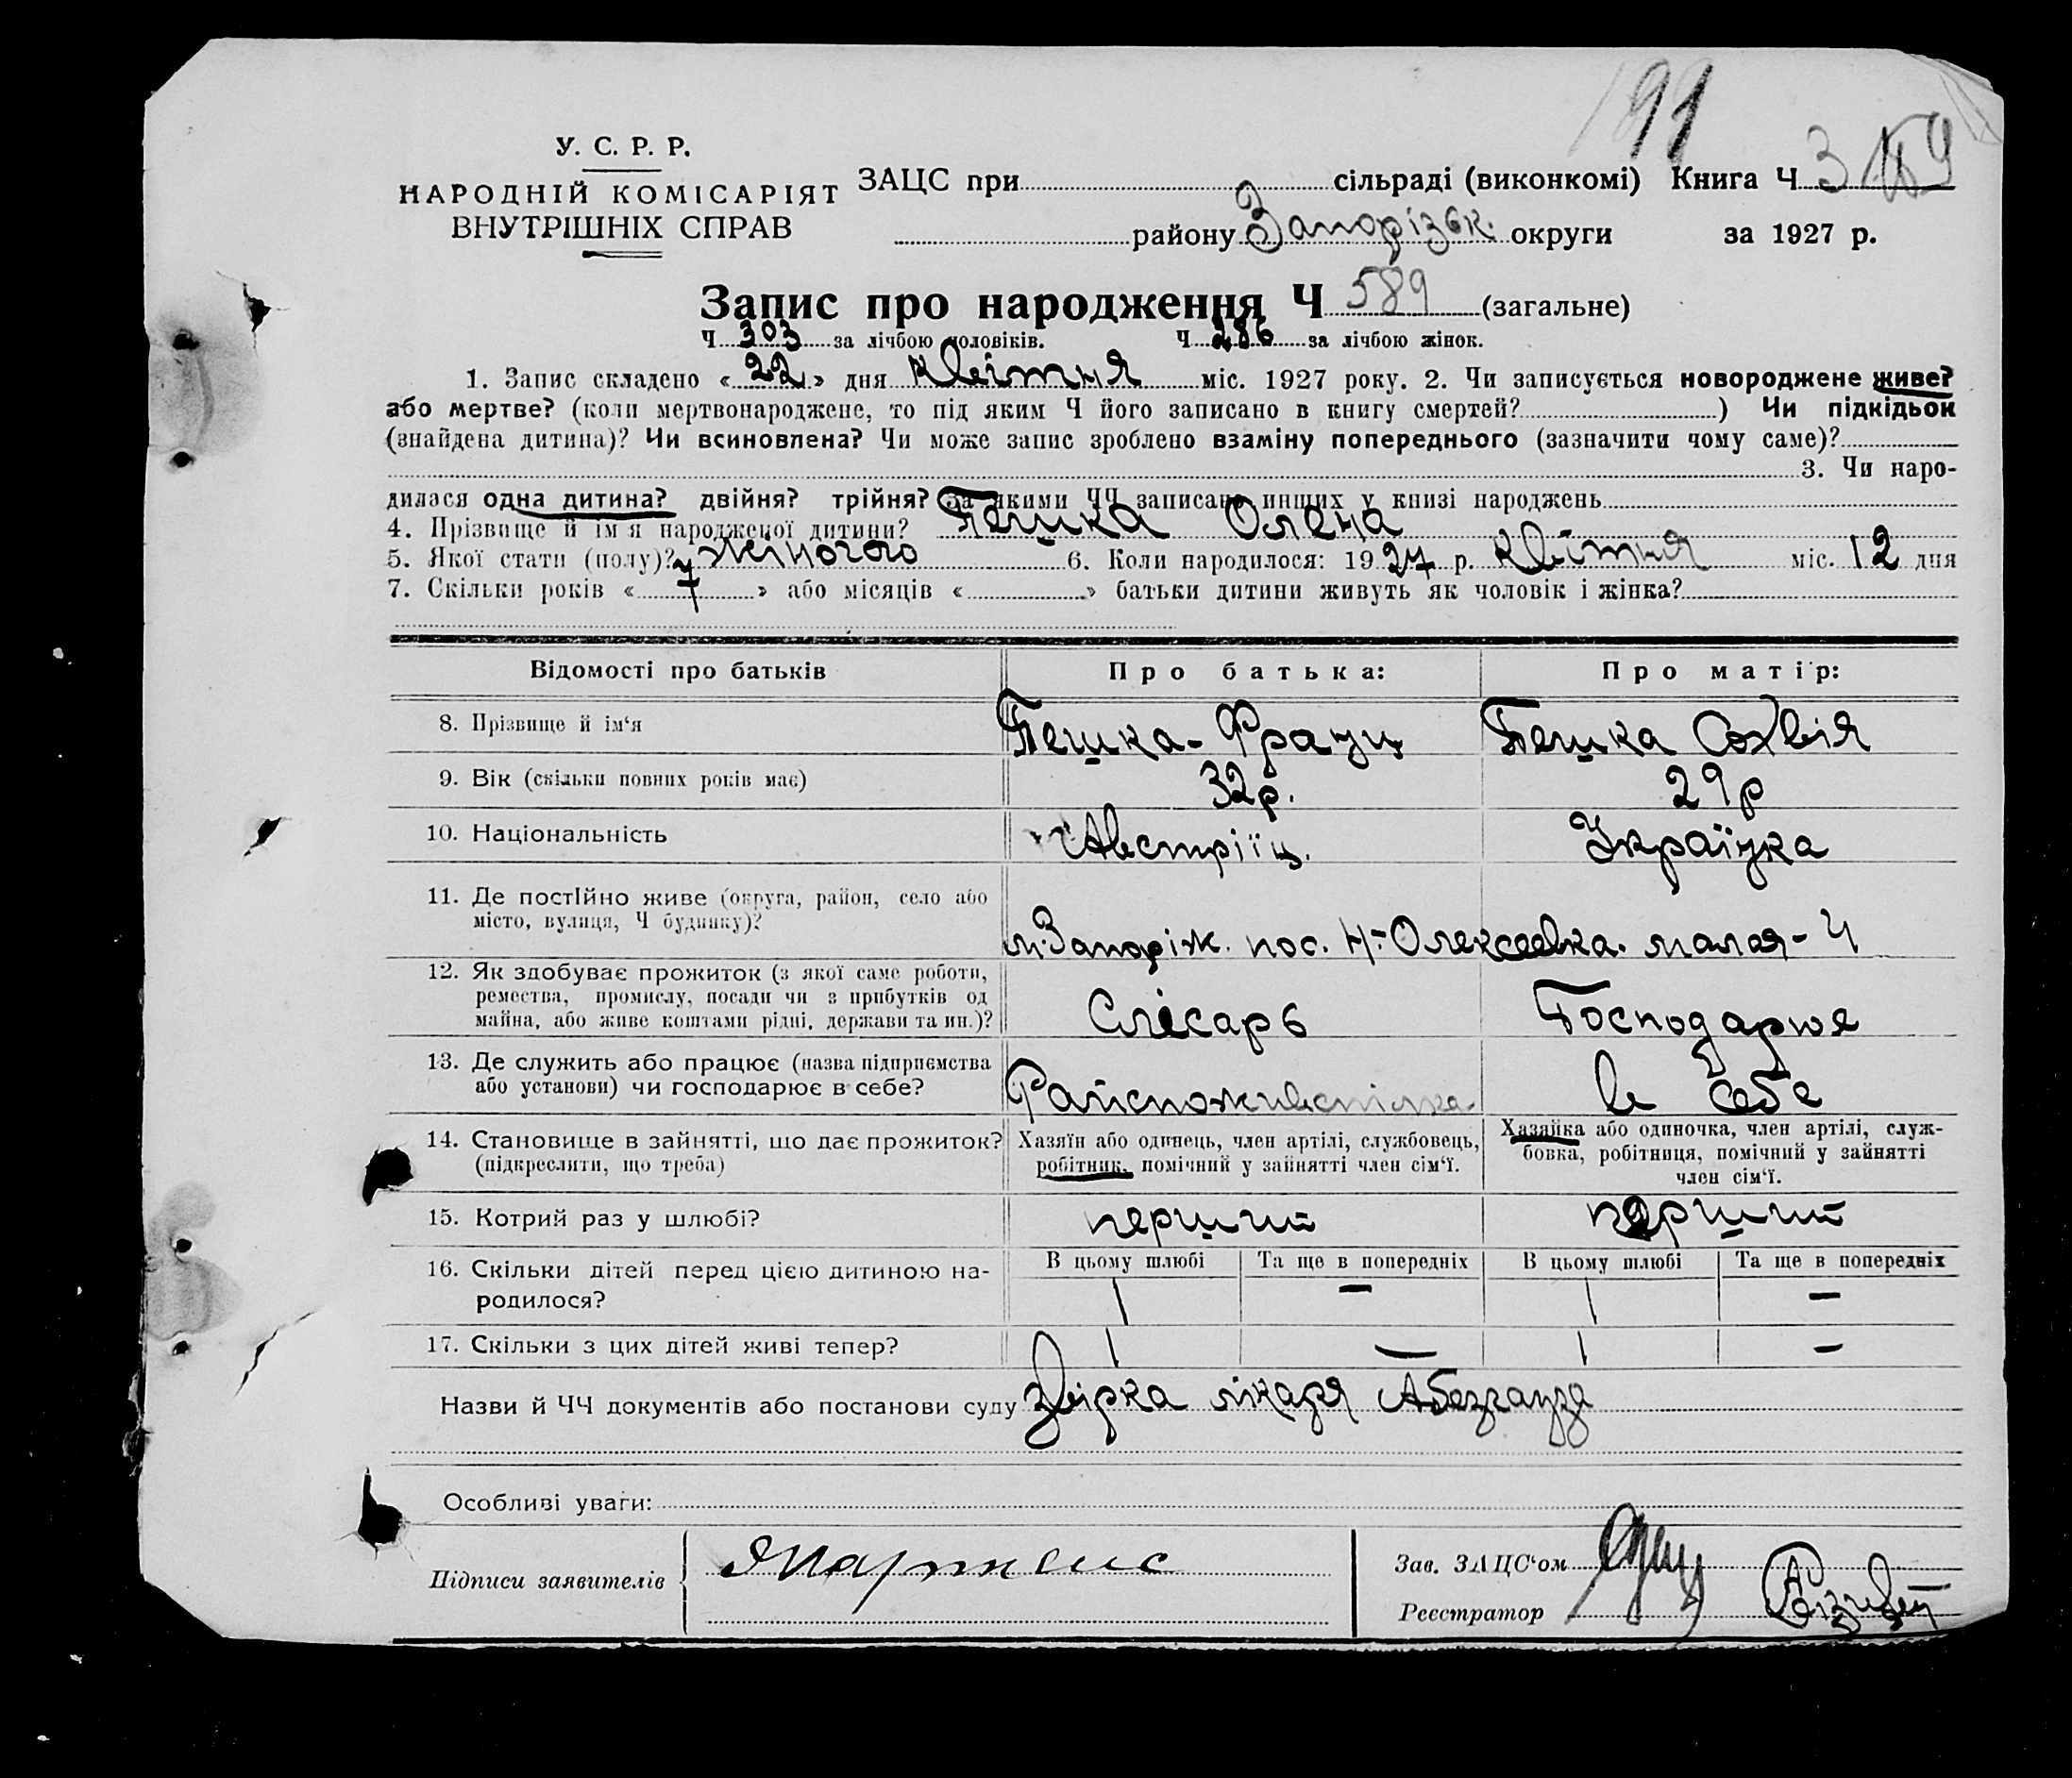 191
У. С. Р. Р.
НАРОДНІЙ КОМІСАРІЯТ
ВНУТРІШНІХ СПРАВ
ЗАЦС при сільраді (виконкомі) Книга Ч 3
району Запорізьк. округи за 1927 р.
Запис про народження Ч 589 (загальне)
Ч 303 за лічбою чоловіків. Ч 286 за лічбою жінок.
1. Запис складено « 22 » дня квітня міс. 1927 року. 2. Чи записується новороджене живе?
або мертве? (коли мертвонароджене, то під яким Ч його записано в книгу смертей? ) Чи підкідьок
(знайдена дитина)? Чи всиновлена? Чи може запис зроблено взаміну попереднього (зазначити чому саме)?
3. Чи наро-
дилася одна дитина? двійня? трійня? За якими ЧЧ записано инших у книзі народжень
4. Прізвище й ім'я народженої дитини? Пешка Олена
5. Якої стати (полу)? жіночого 6. Коли народилося: 1927 р. квітня міс. 12 дня
7. Скільки років « 7 » або місяців « » батьки дитини живуть як чоловік і жінка?
Відомості про батьків Про батька: Про матір:
8. Прізвище й ім'я Пешка-Франц Пешка Софвія
9. Вік (скільки повних років має) 32р. 29р
10. Національність Австріїц. Українка
11. Де постійно живе (округа, район, село або
місто, вулиця, Ч будинку)? м. Запоріж. пос. Н-Олексеевка. малая-4
12. Як здобуває прожиток (з якої саме роботи,
ремества, промислу, посади чи з прибутків од
майна, або живе коштами рідні, держави та ин.)? Слесарь Господарює
13. Де служить або працює (назва підприємства
або установи) чи господарює в себе? Райспоживспілка. в себе
14. Становище в зайнятті, що дає прожиток?
(підкреслити, що треба)
Хазяїн або одинець, член артілі, службовець,
робітник, помічний у зайнятті член сім'ї.
Хазяйка або одиночка, член артілі, служ-
бовка, робітниця, помічний у зайнятті
член сім'ї.
15. Котрий раз у шлюбі? перший перший
16. Скільки дітей перед цією дитиною на-
родилося?
В цьому шлюбі Та ще в попередніх В цьому шлюбі Та ще в попередніх
1 — 1 —
17. Скільки з цих дітей живі тепер? 1 — 1 —
Назви й ЧЧ документів або постанови суду Звірка лікаря
Особливі уваги:
Підписи заявителів
Зав. ЗАЦС'ом
Реєстратор